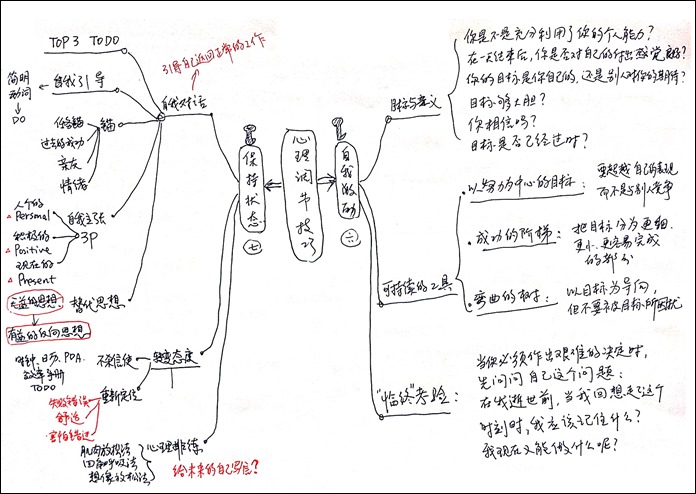 TOP 3 TODO
简明
动词
DO
自我引导
引导自己返回正常的工作
自我对话
任务锚
过去的成功
亲友
情绪
锚
人个的
Personal
积极的
Positive
现在的
Present
3P
自我主张
无益的思想
替代思想
有益的反向思想
时钟、日历、PDA、
效率手册
TODO
不采信使
态度
重新定位
失败错误
舒适
害怕错过
肌肉放松法
四部呼吸法
想像放松法
心理排练
给未来的自己写信?
保持状态
七
心理调节技巧
自我激励
六
目标与意义
你是不是充分利用了你的个人能力?
在一天结束后,你是否对自己的付出感觉良好?
你的目标是你自己的,还是别人对你的期待?
目标够大胆?
你相信吗?
目标是否已经过时?
可持续的工具
以努力为中心的目标:
要超越自己的表现
而不是与别人竞争
成功的阶梯:
把目标分为更细、
更小、更容易完成
的部分
弯曲的树:
以目标为导向,
但不要被目标所困扰
"临终"考验:
当你必须作出艰难的决定时,
先问问自己这个问题:
在我逝世前,当我回想起这个
时刻时,我应该记住什么?
我现在又能做什么呢?